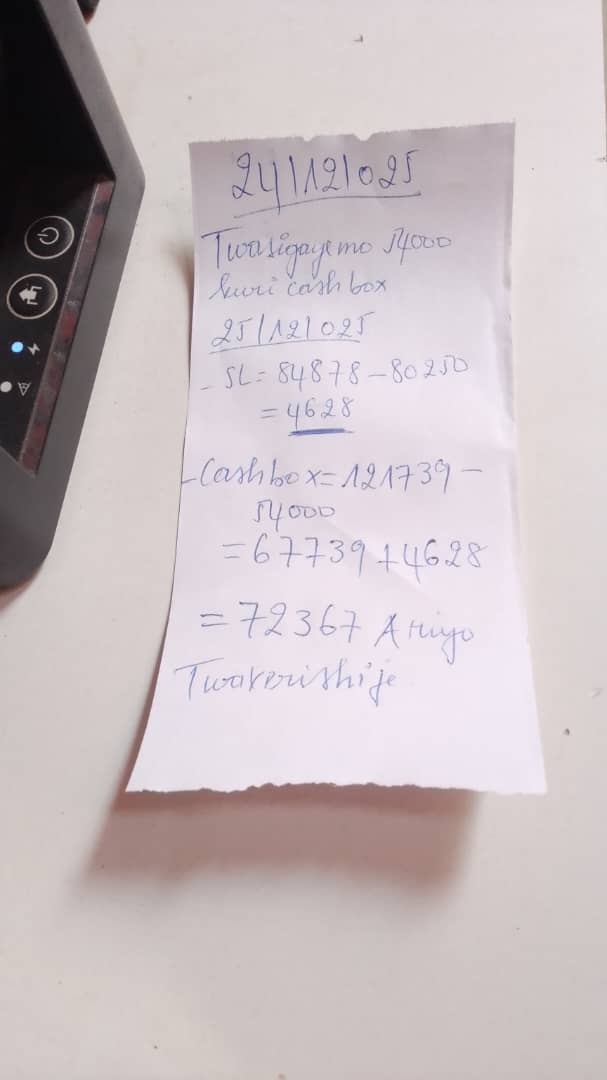 24/12/025
Twasigayemo 54000
kuri cash box
25/12/025
- SL = 84878 - 80250
= 4628
- Cashbox = 121739 -
54000
= 67739 + 4628
= 72367 Ariyo